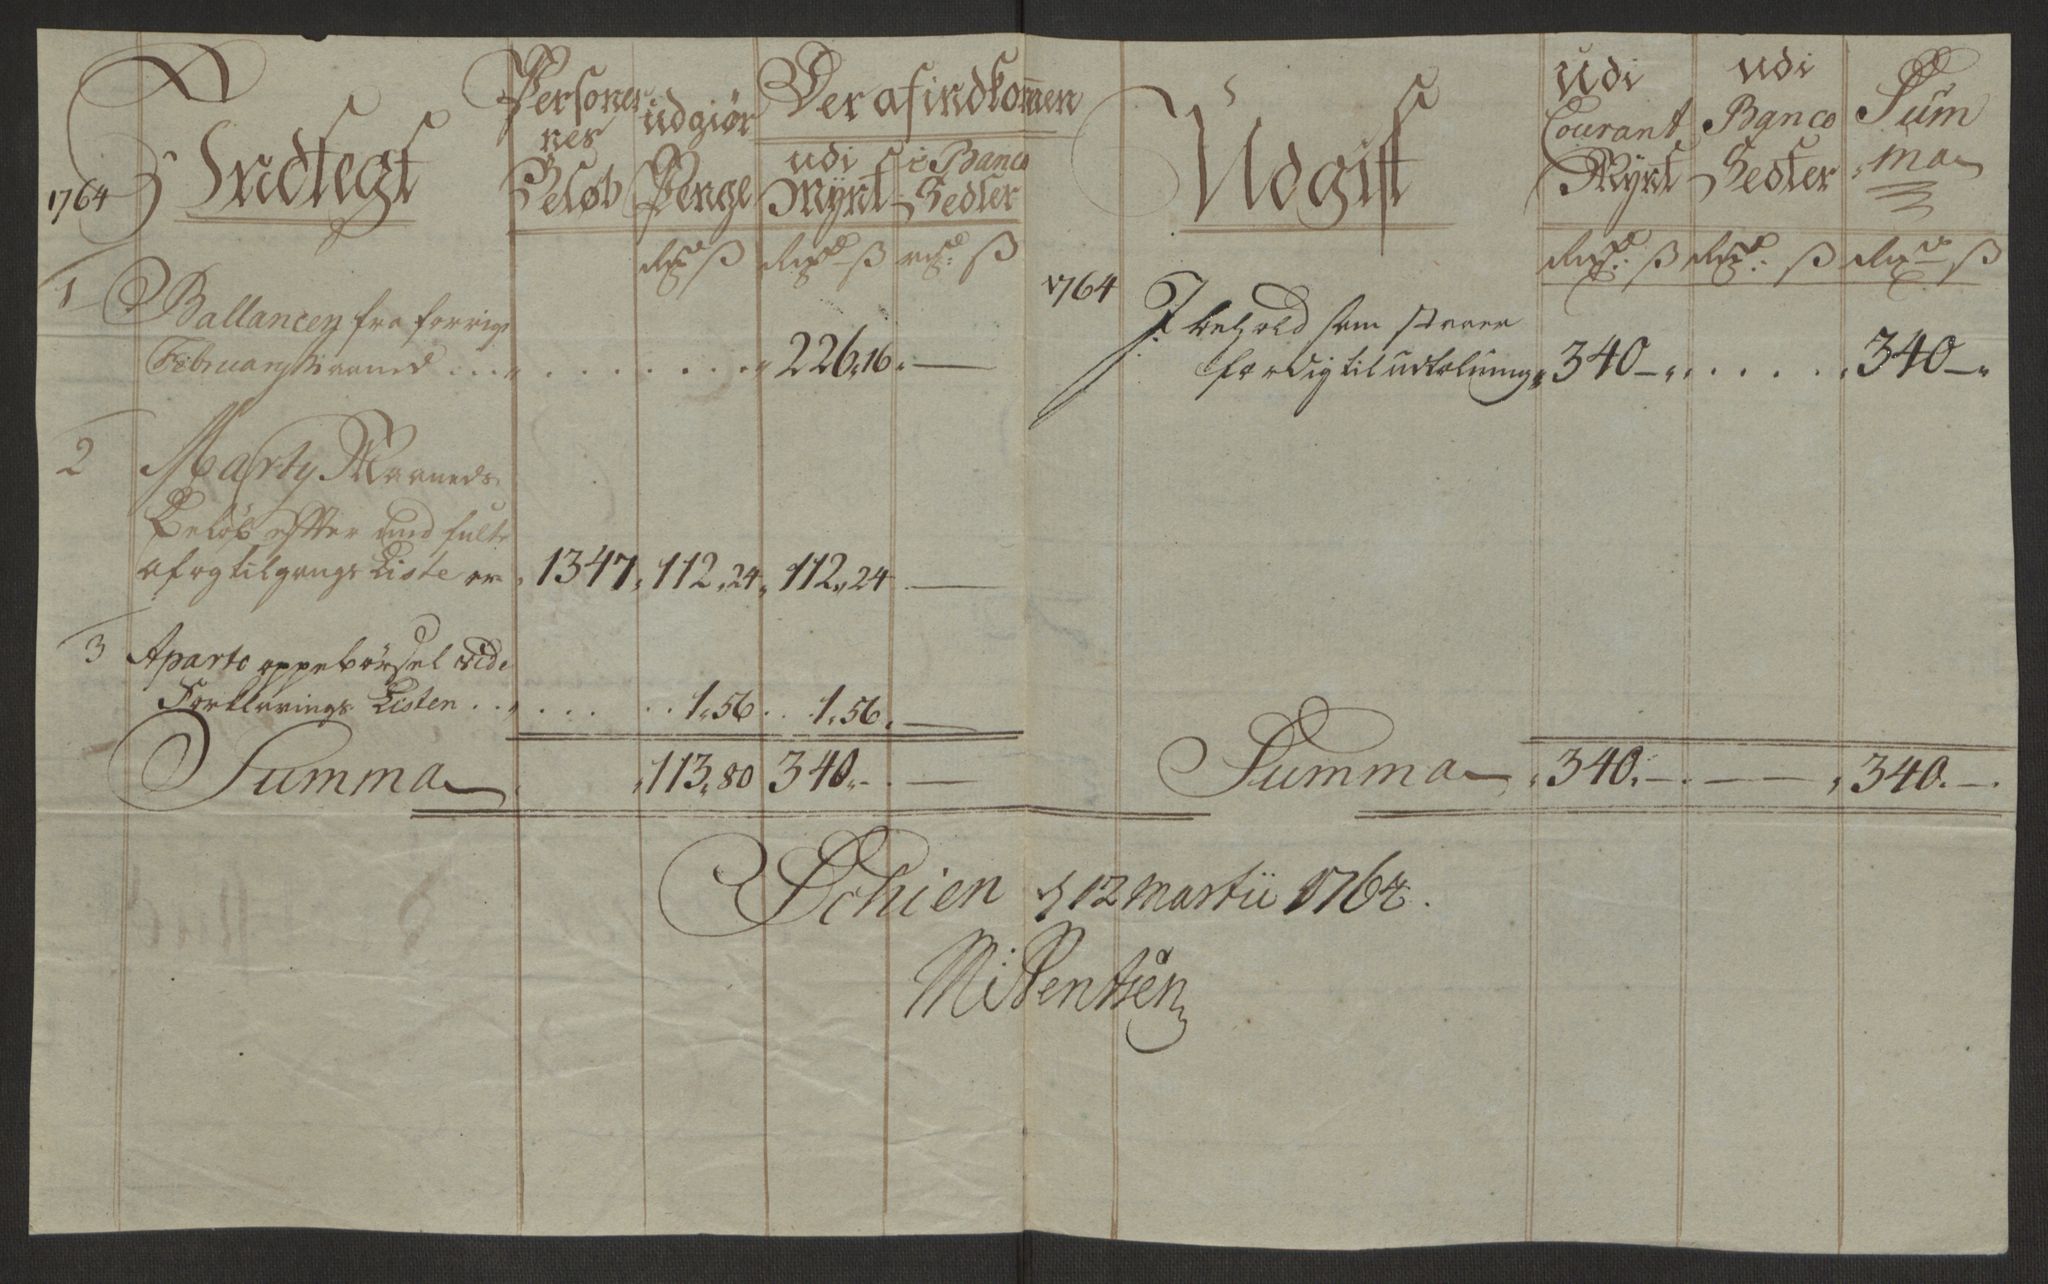 1764 Indtegt
Personer
nes
Beløb
udgiør
Penge
Der af indkommen
udi
Mÿnt
i Banco
Sedler
ß ß ß
1 Ballancen fra forrige
Februarij Maaned . . . 226,16. —
2 Marty Maaneds
Beløb efter
af og tilgangs Liste er 1347, 112,24, 112,24 —
3 Aparte oppebørsel vide
Forklarings Listen . . 1,56. . 1,56. —
Summa 113,80 340.- . —
Udgift
udi
Courant
Mÿnt
udi
Banco
Sedler
Sum
ma
ß ß ß
1764 I behold som
færdig til udtælning 340 — . . . . . 340 —
Summa 340. — . — 340. —.
Schien d 12 Martii 1764.